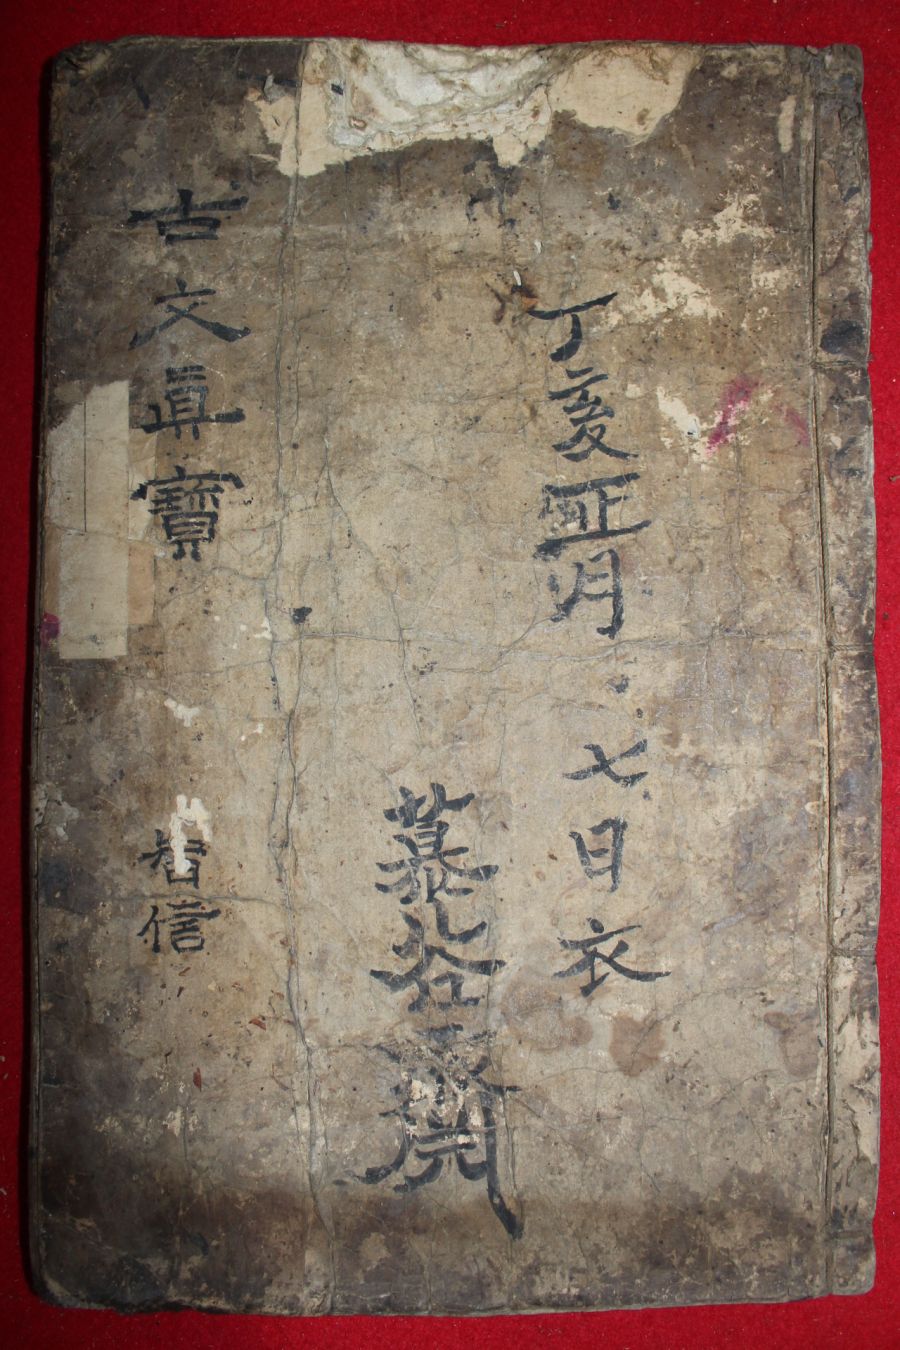 丁亥正月七日衣
慕齋
古文眞寶
信